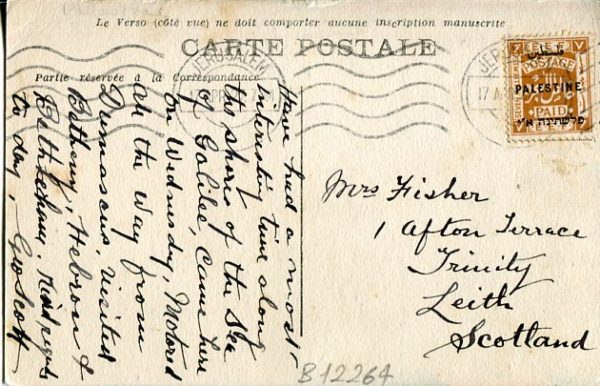 Le Verso (côté vue) ne doit comporter aucune inscription manuscrite
CARTE POSTALE
Partie réservée à la Correspondance
JERUSALEM
17 APR
JER
17 A
فلسطين
POSTAGE
PALESTINE
PAID
פלשתינה א״י
Have had a most
interesting time along
the shores of the Sea
of Galilee, Came here
on Wednesday, Motored
all the way from
Damascus, Visited
Bethany, Hebron &
Bethlehem, Kind regards
to day, Geo Scott
Mrs Fisher
1 Afton Terrace
Trinity
Leith
Scotland
B12264